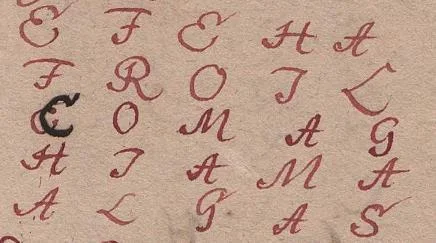 E F E H A
F R O I L
C O M A G
H I A M A
A L G A S